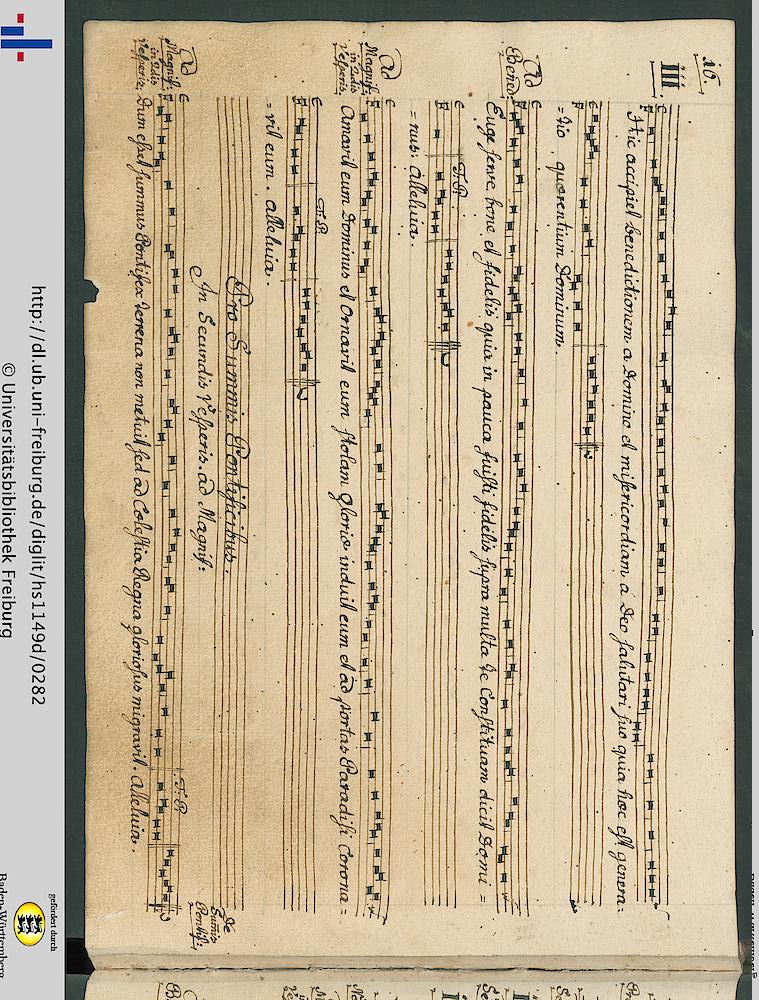 10.
III
Hic accipiet benedictionem a Domino et misericordiam a Deo salutari suo quia hoc est genera=
=tio quærentium Dominum.
Ad
Bened:
Euge serve bone et fidelis quia in pauca fuisti fidelis supra multa te Constituam dicit Domi=
T. P.
=nus: alleluia.
Ad
Magnif:
in 2dis
Vesperis.
Amavit eum Dominus et Ornavit eum stolam gloriæ induit eum et ad portas Paradisi Corona=
T. P.
=vit eum. alleluia.
Pro Summis Pontificibus.
In Secundis Vesperis. ad Magnif:
De
Sumis
Pontif:
Ad
Magnif:
in 2dis
Vesperis.
T. P.
Dum esset summus Pontifex terrena non metuit sed ad Coelestia Regna gloriosus migravit. Alleluia.
http://dl.ub.uni-freiburg.de/diglit/hs1149d/0282
© Universitätsbibliothek Freiburg
gefördert durch
Baden-Württemberg